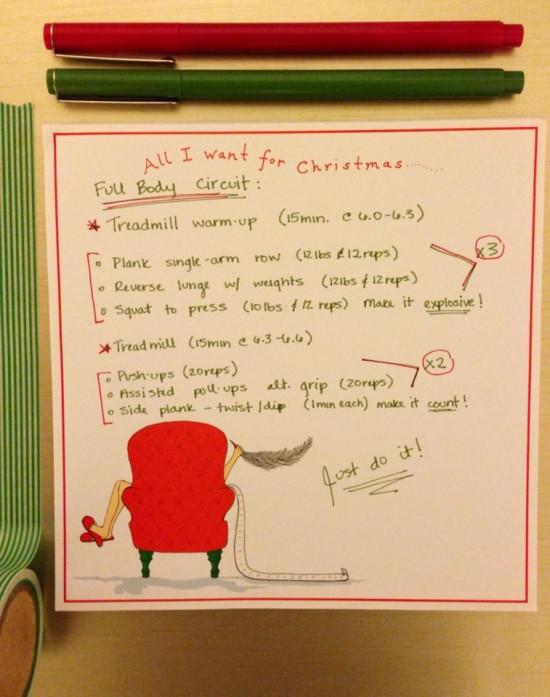 All I want for Christmas........
Full Body Circuit:
* Treadmill warm-up (15min. @ 6.0-6.3)
Plank single-arm row (12lbs & 12reps)
Reverse lunge w/ weights (12lbs & 12reps)
Squat to press (10lbs & 12 reps) make it explosive!
x3
* Treadmill (15min @ 6.3-6.6)
Push-ups (20reps)
Assisted pull-ups alt. grip (20reps)
Side plank - twist/dip (1min each) make it count!
x2
Just do it!